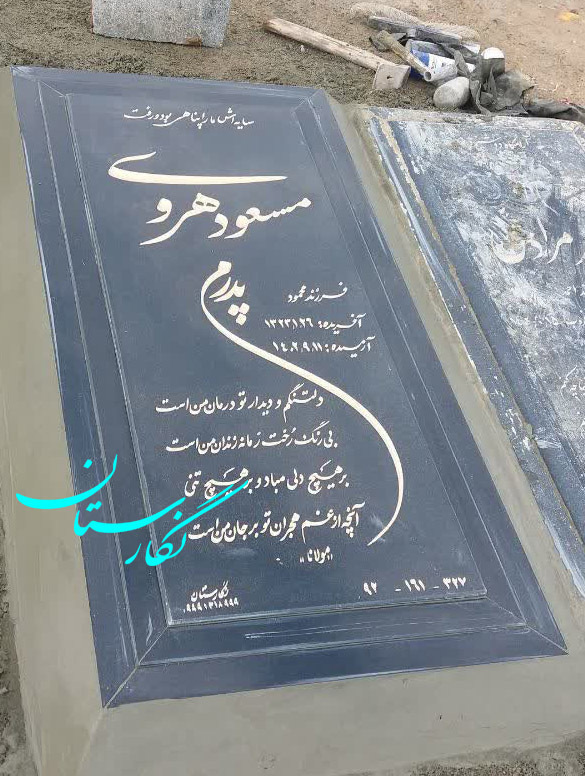 سایه اش ما را پناهی بود و رفت
مسعود هروی
پدرم
فرزند محمود
آفریده: ۱۳۲۳،۱،۲۶
آرمیده: ۱۴۰۲،۹،۱۱
دلتنگم و دیدار تو درمان من است
بی رنگ رخت زمانه زندان من است
بر هیچ دلی مباد و بر هیچ تنی
آنچه از غم هجران تو بر جان من است
"مولانا"
۳۲۷ - ۱۶۱ - ۹۲
نگارستان
۰۹۹۱۳۱۸۹۹۹
نگارستان
مرادی